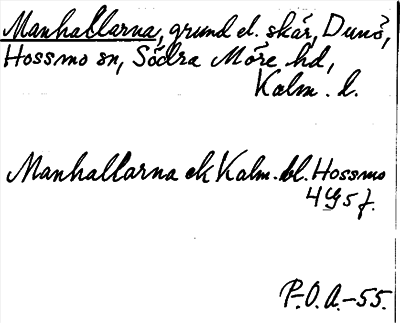 Manhallarna, grund el. skär, Dunö,
Hossmo sn, Södra Möre hd,
Kalm. l.
Manhallarna ek Kalm. bl. Hossmo
4G5f.
P.O.A.-55.